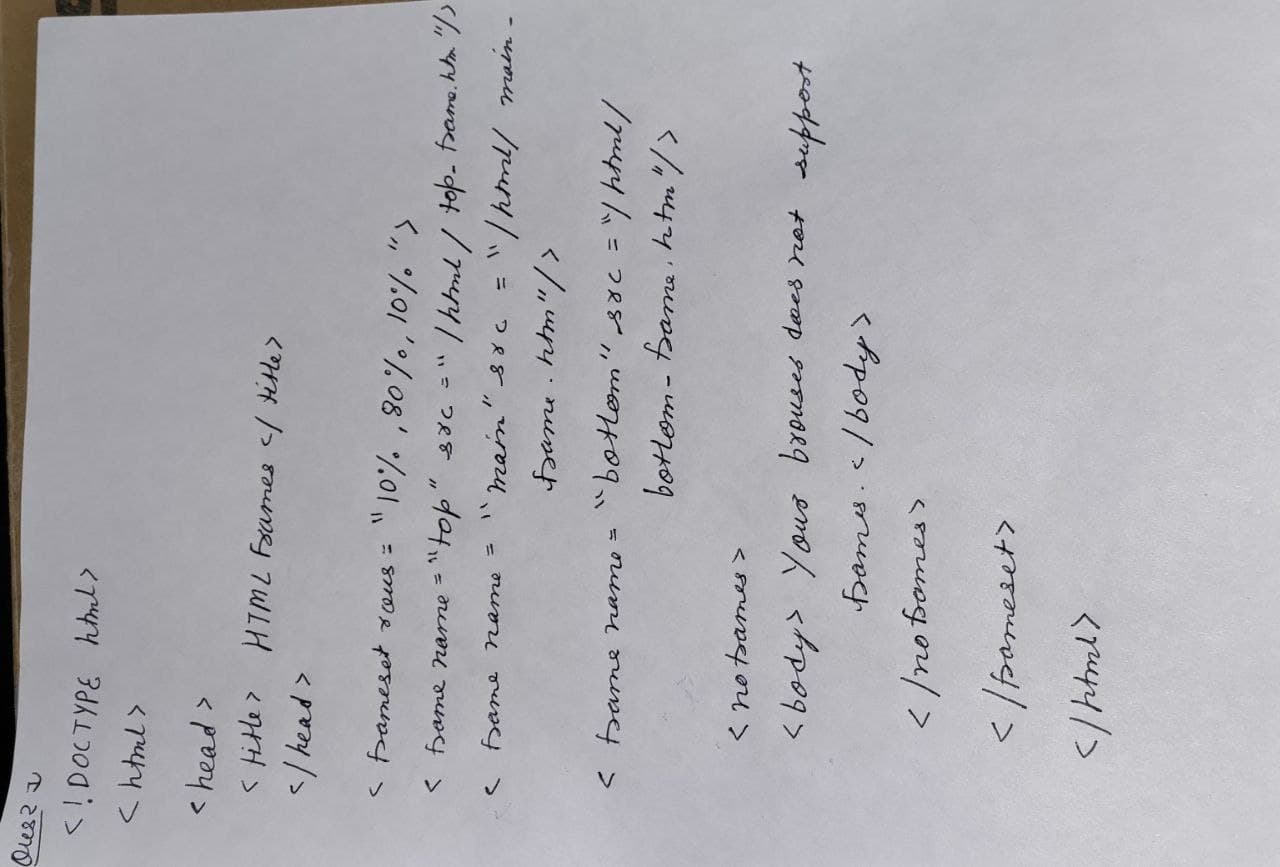 Ques 2 →
<!DOCTYPE html>
<html>
<head>
<title> HTML Frames </title>
</head>
<frameset rows = "10%, 80%, 10%">
<frame name = "top" src = "/html/top-frame.htm"/>
<frame name = "main" src = "/html/main-
frame.htm"/>
<frame name = "bottom" src = "/html/
bottom-frame.htm"/>
<noframes>
<body> Your browser does not support
frames. </body>
</noframes>
</frameset>
</html>